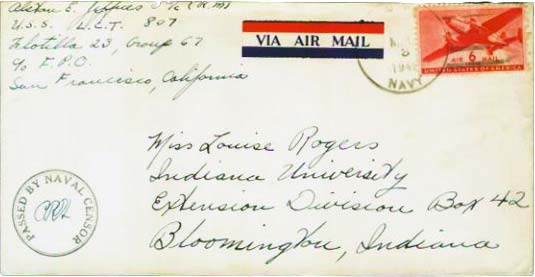 U.S.S. L.C.T. 807
Flotilla 23, Group 67
San Francisco, California
VIA AIR MAIL
NAVY
6
AIR MAIL
UNITED STATES OF AMERICA
Miss Louise Rogers
Indiana University
Extension Division Box 42
Bloomington, Indiana
PASSED BY NAVAL CENSOR